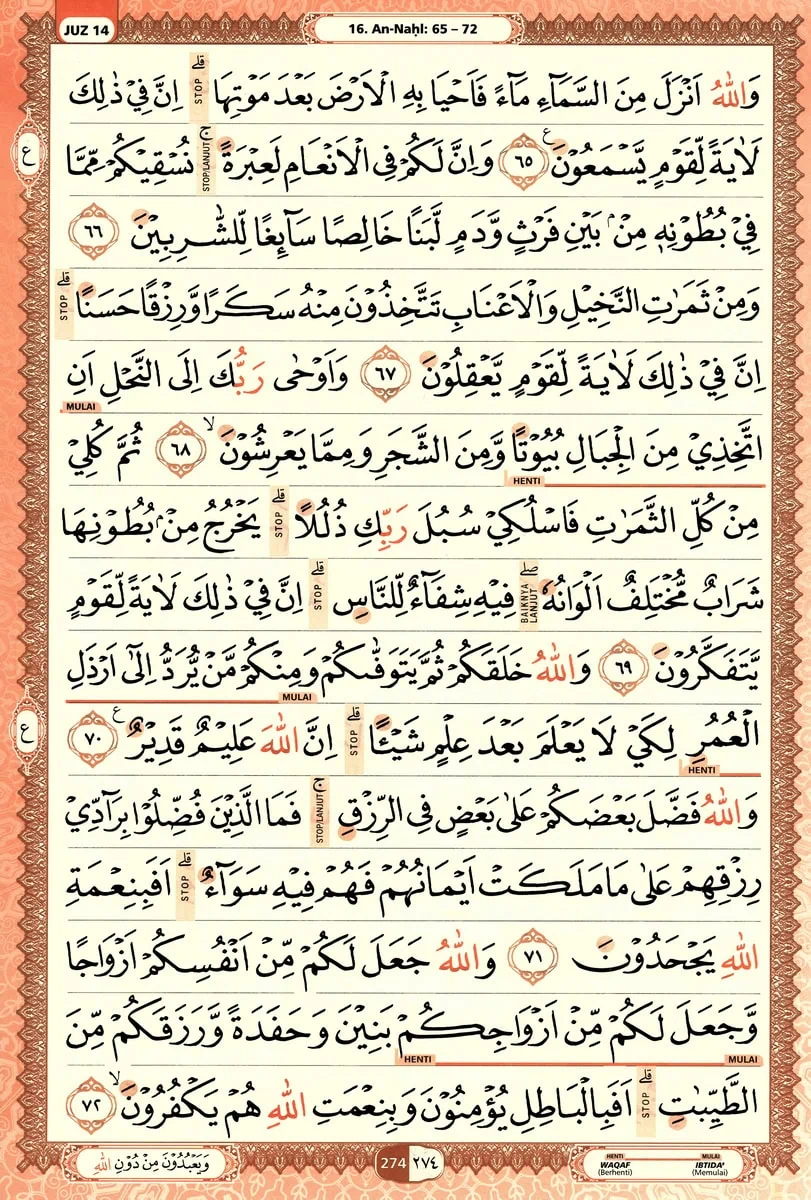 JUZ 14
16. An-Naḥl: 65 – 72
وَاللّٰهُ اَنْزَلَ مِنَ السَّمَاۤءِ مَاۤءً فَاَحْيَا بِهِ الْاَرْضَ بَعْدَ مَوْتِهَا ۗ STOP اِنَّ فِيْ ذٰلِكَ
لَاٰيَةً لِّقَوْمٍ يَّسْمَعُوْنَ ࣖ ٦٥ وَاِنَّ لَكُمْ فِى الْاَنْعَامِ لَعِبْرَةً ۚ STOP/LANJUT نُسْقِيْكُمْ مِّمَّا
ع
فِيْ بُطُوْنِهٖ مِنْۢ بَيْنِ فَرْثٍ وَّدَمٍ لَّبَنًا خَالِصًا سَاۤىِٕغًا لِّلشّٰرِبِيْنَ ٦٦
وَمِنْ ثَمَرٰتِ النَّخِيْلِ وَالْاَعْنَابِ تَتَّخِذُوْنَ مِنْهُ سَكَرًا وَّرِزْقًا حَسَنًا ۗ STOP
اِنَّ فِيْ ذٰلِكَ لَاٰيَةً لِّقَوْمٍ يَّعْقِلُوْنَ ٦٧ وَاَوْحٰى رَبُّكَ اِلَى النَّحْلِ اَنِ
MULAI
اتَّخِذِيْ مِنَ الْجِبَالِ بُيُوْتًا وَّمِنَ الشَّجَرِ وَمِمَّا يَعْرِشُوْنَ ۙ ٦٨ ثُمَّ كُلِيْ
HENTI
مِنْ كُلِّ الثَّمَرٰتِ فَاسْلُكِيْ سُبُلَ رَبِّكِ ذُلُلًا ۗ STOP يَخْرُجُ مِنْۢ بُطُوْنِهَا
شَرَابٌ مُّخْتَلِفٌ اَلْوَانُهٗ ۖ BAIKNYA LANJUT فِيْهِ شِفَاۤءٌ لِّلنَّاسِ ۗ STOP اِنَّ فِيْ ذٰلِكَ لَاٰيَةً لِّقَوْمٍ
يَّتَفَكَّرُوْنَ ٦٩ وَاللّٰهُ خَلَقَكُمْ ثُمَّ يَتَوَفّٰىكُمْ وَمِنْكُمْ مَّنْ يُّرَدُّ اِلٰٓى اَرْذَلِ
MULAI
الْعُمُرِ لِكَيْ لَا يَعْلَمَ بَعْدَ عِلْمٍ شَيْـًٔا ۗ STOP اِنَّ اللّٰهَ عَلِيْمٌ قَدِيْرٌ ࣖ ٧٠
ع
HENTI
وَاللّٰهُ فَضَّلَ بَعْضَكُمْ عَلٰى بَعْضٍ فِى الرِّزْقِ ۚ STOP/LANJUT فَمَا الَّذِيْنَ فُضِّلُوْا بِرَاۤدِّيْ
رِزْقِهِمْ عَلٰى مَا مَلَكَتْ اَيْمَانُهُمْ فَهُمْ فِيْهِ سَوَاۤءٌ ۗ STOP اَفَبِنِعْمَةِ
اللّٰهِ يَجْحَدُوْنَ ٧١ وَاللّٰهُ جَعَلَ لَكُمْ مِّنْ اَنْفُسِكُمْ اَزْوَاجًا
وَّجَعَلَ لَكُمْ مِّنْ اَزْوَاجِكُمْ بَنِيْنَ وَحَفَدَةً وَّرَزَقَكُمْ مِّنَ
HENTI MULAI
الطَّيِّبٰتِ ۗ STOP اَفَبِالْبَاطِلِ يُؤْمِنُوْنَ وَبِنِعْمَتِ اللّٰهِ هُمْ يَكْفُرُوْنَ ۙ ٧٢
وَيَعْبُدُوْنَ مِنْ دُوْنِ اللّٰهِ
274 ٢٧٤
HENTI WAQAF (Berhenti)
MULAI IBTIDA' (Memulai)